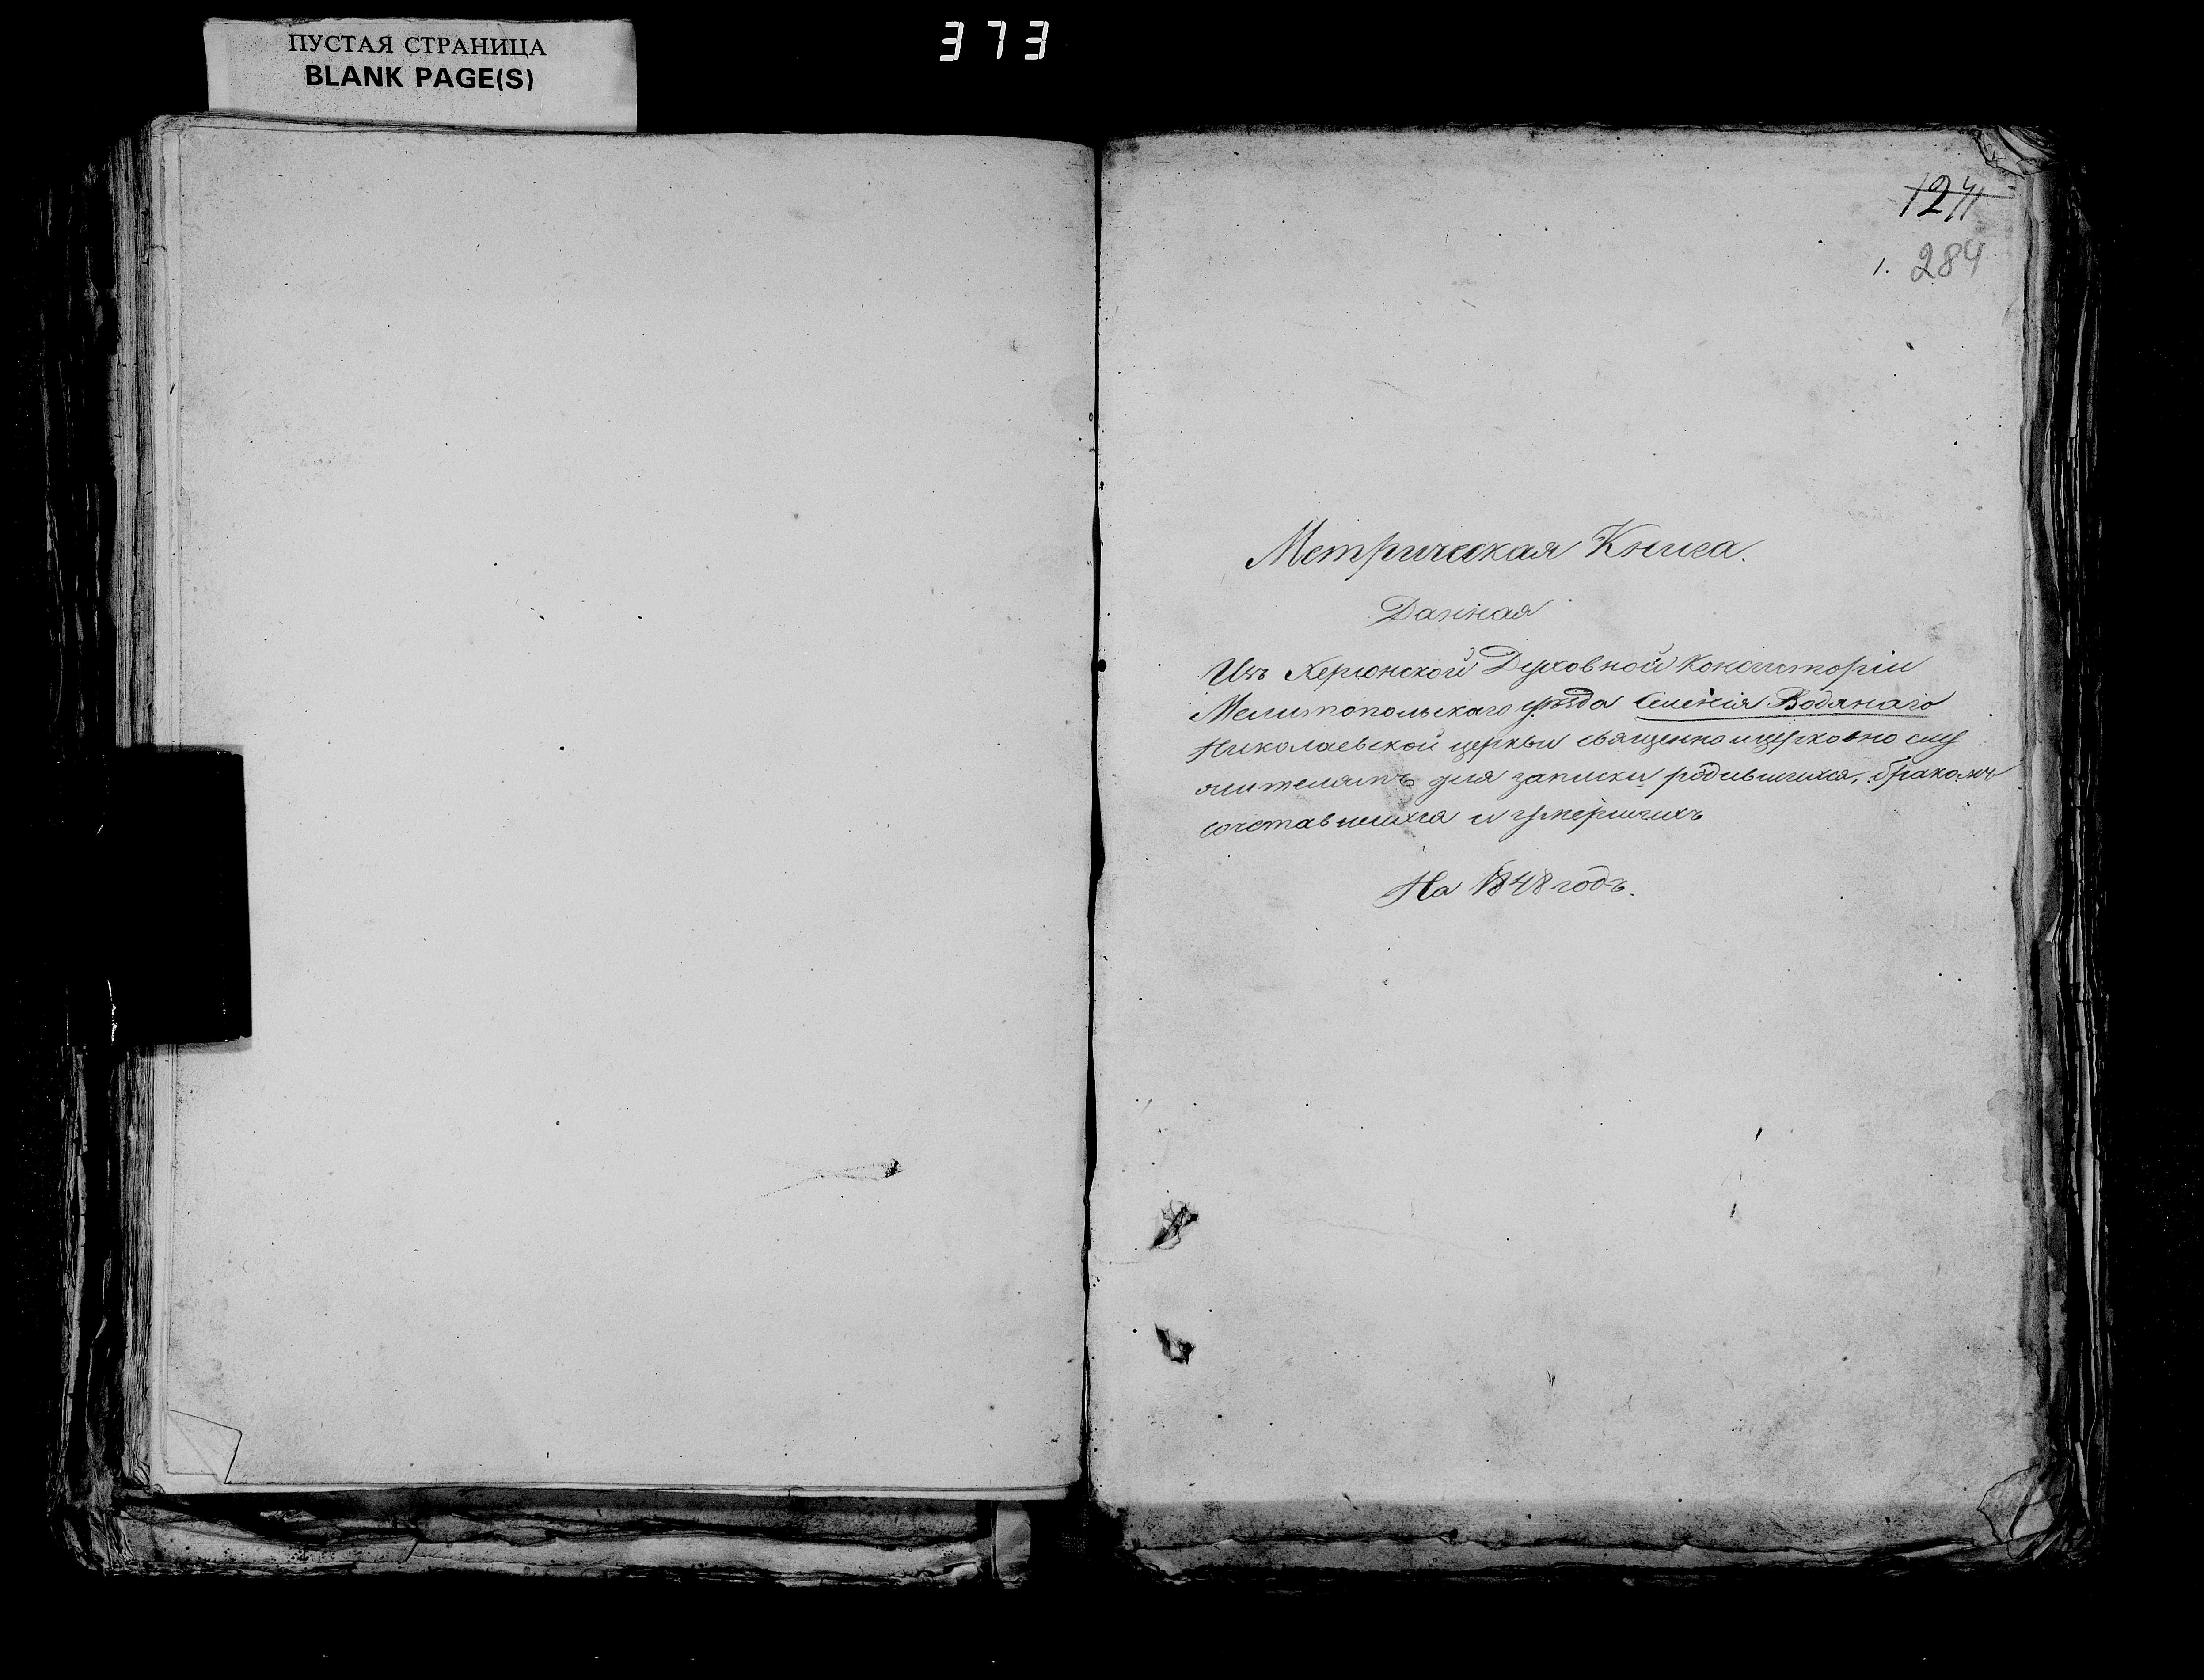 ПУСТАЯ СТРАНИЦА
BLANK PAGE(S)
373
1. 284
Метрическая Книга.
Данная
Изъ Херсонской Духовной Консисторіи
Мелитопольскаго уѣзда Селенія Водянаго
Николаевской церкви священно и церковно слу
жителямъ для записки родившихся, бракомъ
сочетавшихся и умершихъ
На 1848 годъ.